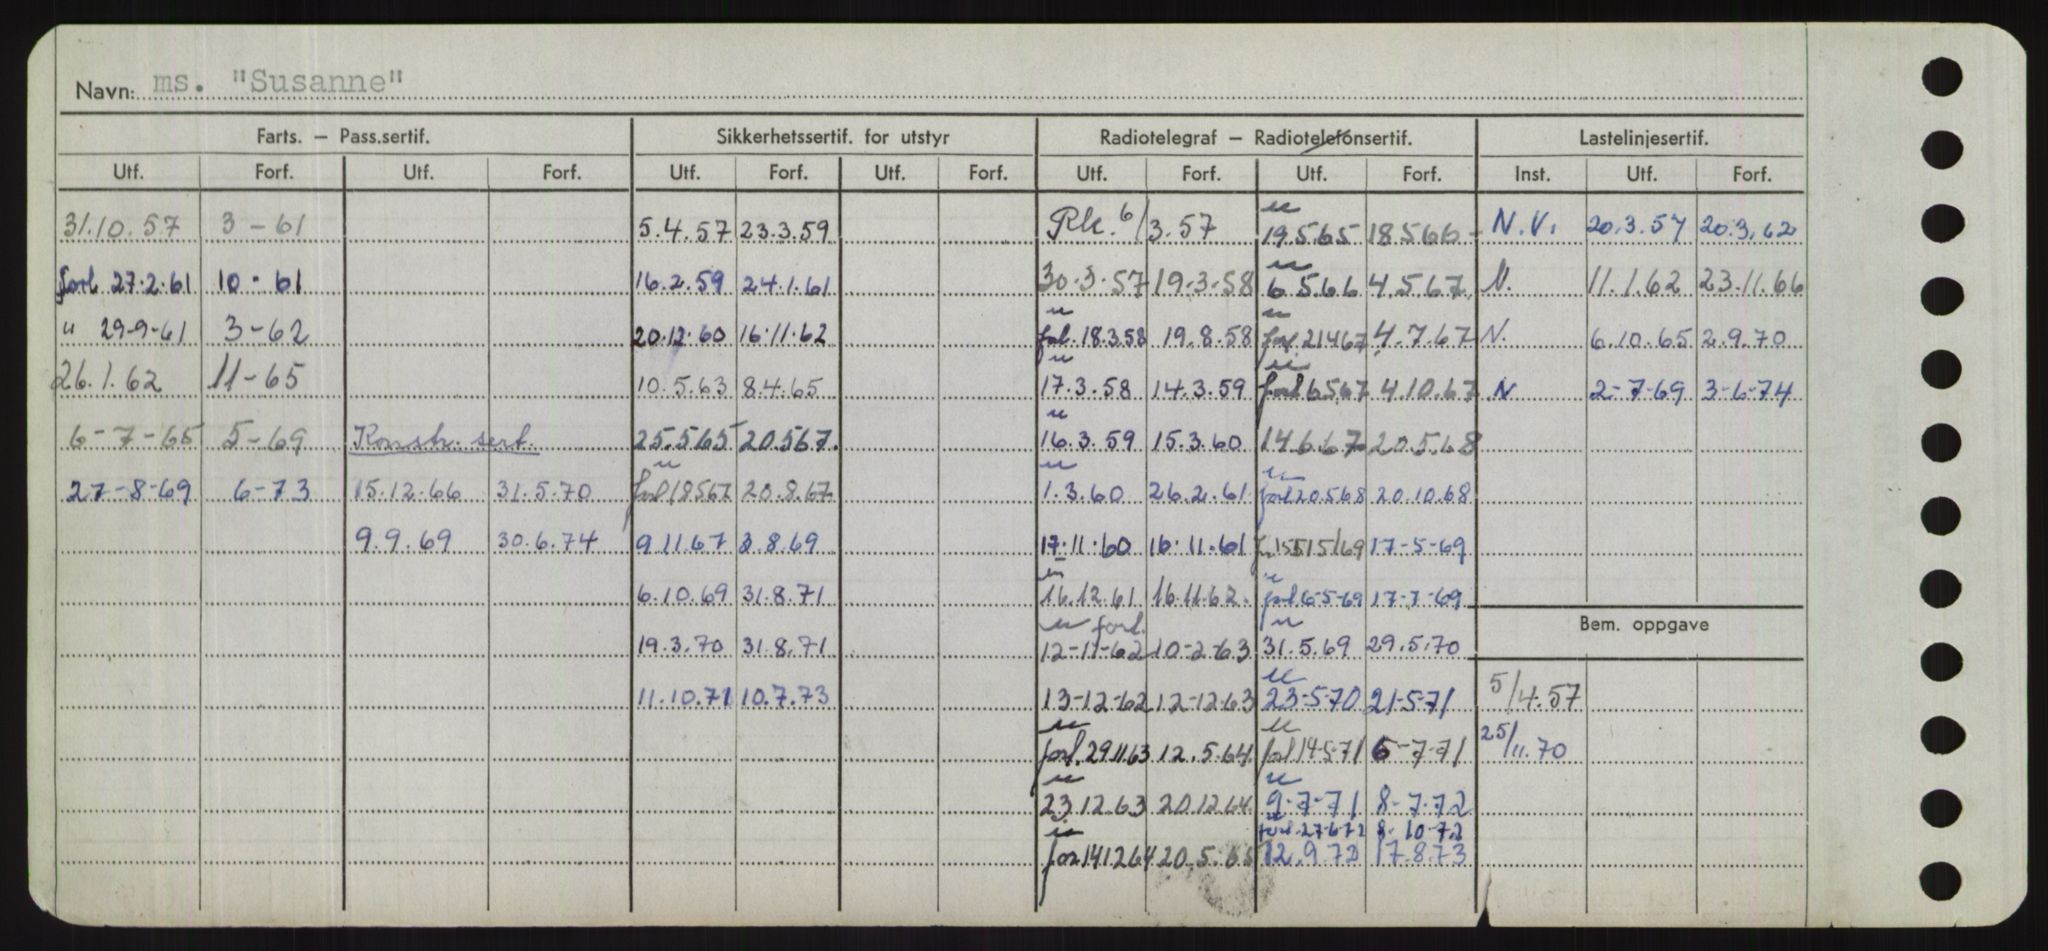 Navn: ms. "Susanne"
Farts. — Pass.sertif. Sikkerhetssertif. for utstyr Radiotelegraf — Radiotelefonsertif. Lastelinjesertif.
Utf. Forf. Utf. Forf. Utf. Forf. Utf. Forf. Utf. Forf. Utf. Forf. Inst. Utf. Forf.
31.10.57 3-61 5.4.57 23.3.59 6/3.57 " 19.5.65 18.5.66 - N.V. 20.3.57 20.3.62
forl. 27.2.61 10-61 16.2.59 24.1.61 30.3.57 19-3-58 " 6.5.66 4.5.67 N. 11.1.62 23.11.66
" 29-9-61 3-62 20.12.60 16.11.62 " forl. 18.3.58 19.8.58 " forl. 21467 4.7.67 N. 6.10.65 2.9.70
26.1.62 11-65 10.5.63 8.4.65 " 17.3.58 14.3.59 " forl 6567 4.10.67 N 2-7-69 3-6-74
6-7-65 5-69 Konstr. sert. 25.5.65 20.5.67. " 16.3.59 15.3.60 14.6.67 20.5.68
27-8-69 6-73 15.12.66 31.5.70 " forl 18567 20.8.67 " 1.3.60 26.2.61 " forl 20.5.68 20.10.68
9.9.69 30.6.74 9.11.67 8.8.69 17.11.60 16.11.61 17-5-69
6.10.69 31.8.71 " 16.12.61 16.11.62. " forl 6-5-69 17-7-69
19.3.70 31.8.71 " forl. 12-11-62 10-2-63 " 31.5.69 29.5.70
Bem. oppgave
11.10.71 10.7.73 13-12-62 12-12-63 " 23-5-70 21-5-71 5/4.57
" forl. 29.11.63 12.5.64 " forl 14-5-71 6-7-71 25/11.70
" 23.12.63 20.12.64. " 9-7-71 8-7-72
forl. 27.6.72 8.10.72
" for 141264 20.5.65 12.9.72 17.8.73